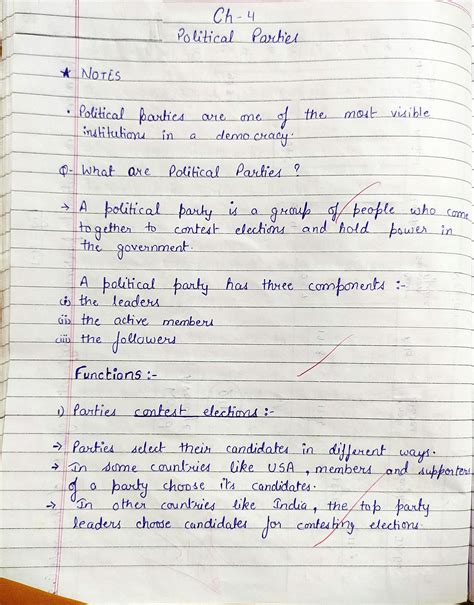 Ch-4
Political Parties
★ NOTES
• Political parties are one of the most visible
institutions in a democracy.
Q- What are Political Parties ?
→ A political party is a group of people who come
together to contest elections and hold power in
the government.
A political party has three components :-
(i) the leaders
(ii) the active members
(iii) the followers
Functions :-
1) Parties contest elections :-
→ Parties select their candidates in different ways.
→ In some countries like USA, members and supporters
of a party choose its candidates.
→ In other countries like India, the top party
leaders choose candidates for contesting elections.